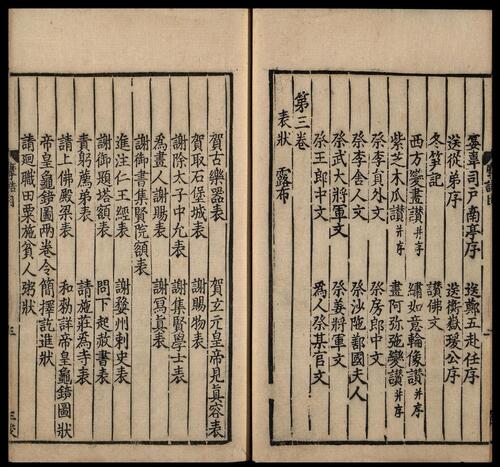 宴韋司戶南亭序 送鄭五赴任序
送從弟序 送衡嶽瑗公序
冬筍記 讚佛文
西方變畫讚并序 繡如意輪像讚并序
紫芝木瓜讚并序 畫阿弥陁變讚并序
祭李貟外文 祭房郎中文
祭李舍人文 祭沙陁鄯國夫人
祭武大將軍文 祭姜將軍文
祭王郎中文 為人祭某官文
第三卷
表狀 露布
賀古樂器表 賀玄元皇帝見真容表
賀取石堡城表 謝賜物表
謝除太子中允表 謝集賢學士表
爲畫人謝賜表 謝寫真表
謝御書集賢院額表
進注仁王經表 謝婺州刺史表
謝御題塔額表 問下起赦書表
責躬薦弟表 請施莊爲寺表
請上佛殿梁表 和勑詳帝皇龜鏡圖狀
帝皇龜鏡圖兩卷令簡擇訖進狀
請廻職田粟施貧人粥狀
三